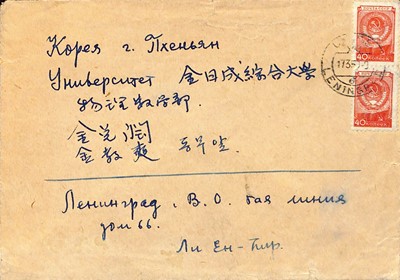 ПОЧТА СССР
40
40
LENINGRAD
Корея г. Пхеньян
Университет 金日成綜合大學
物理数学部.
金
金 教 爽 동무앞
Ленинград, В.О. 6ая линия
дом 66.
Ли Ен-Пир.